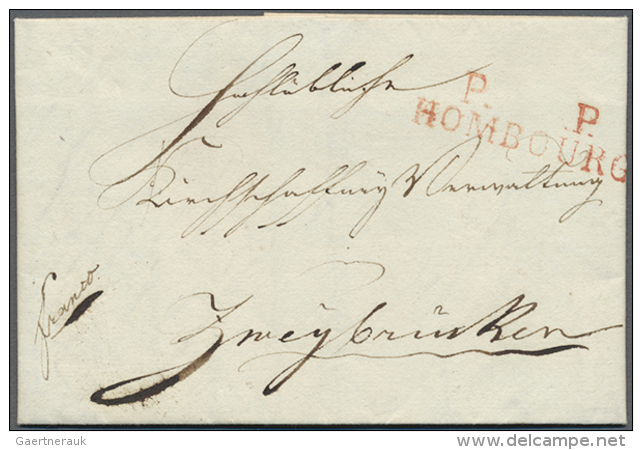 Hochlöbliche
P. P.
HOMBOURG
Kirchschaffney Verwaltung
franco.
Zweybrücken
Gaertnerauk
www.delcampe.net